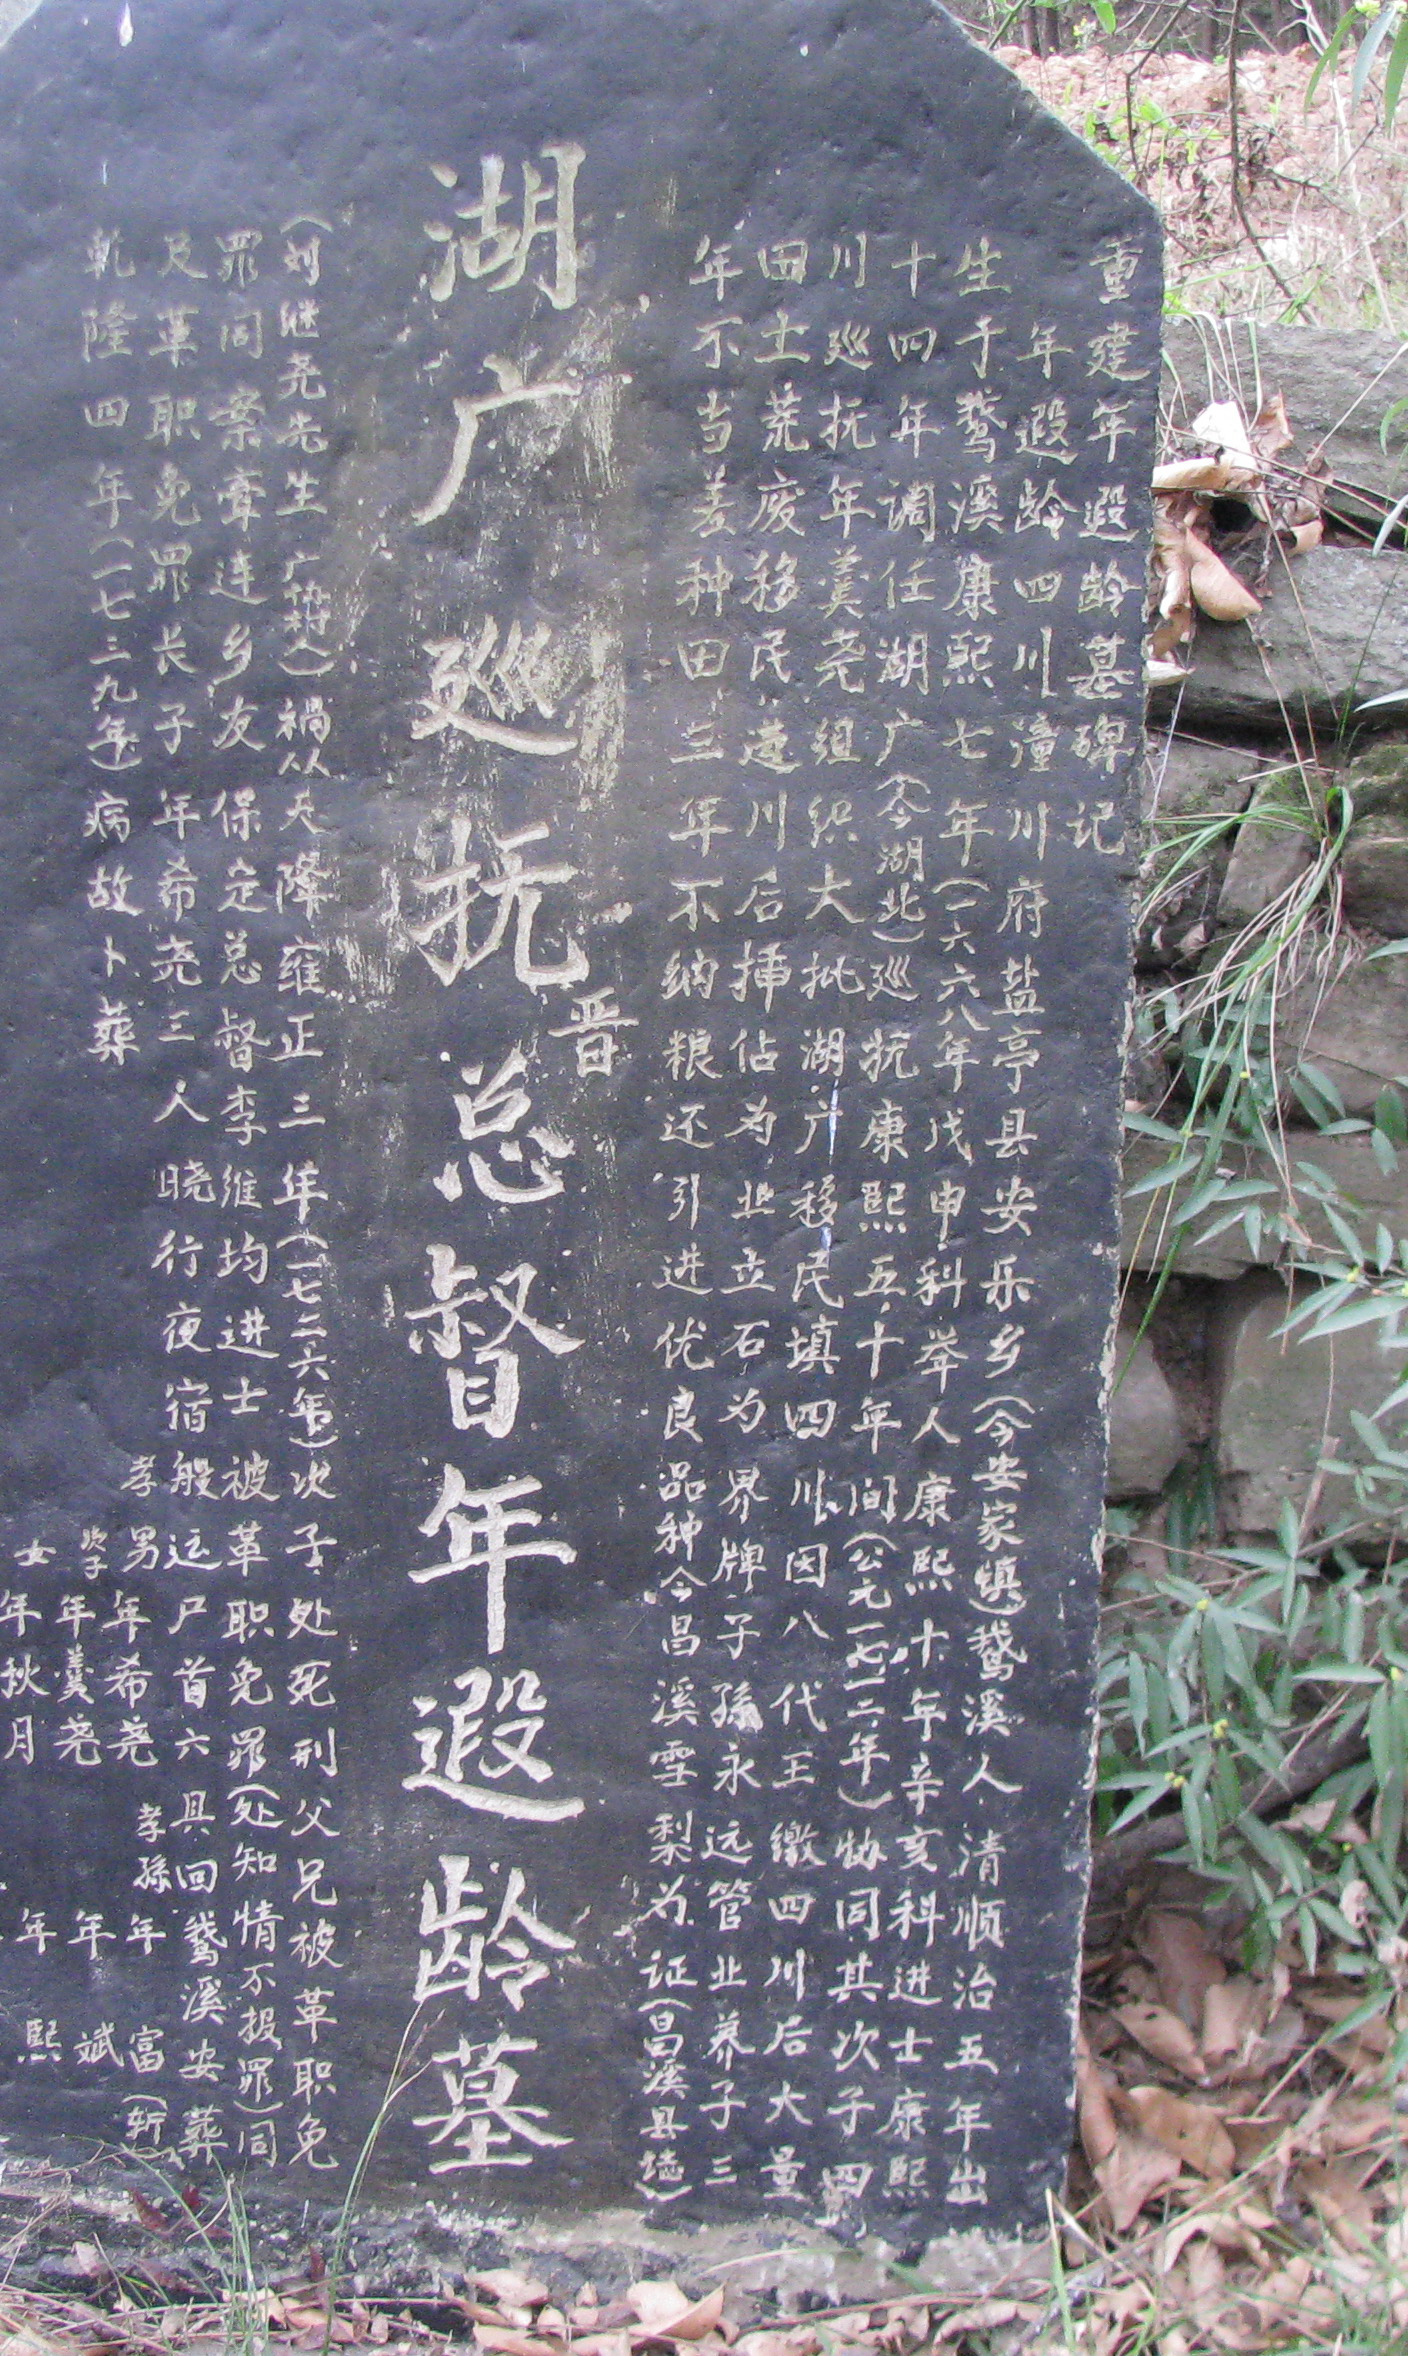 重建年遐龄墓碑记
年遐龄四川潼川府盐亭县安乐乡（今安家镇）鹅溪人清顺治五年出
生于鹅溪康熙七年（一六六八年戊申科举人康熙十年辛亥科进士康熙
十四年调任湖广（今湖北）巡抚康熙五十年间（公元一七一二年）协同其次子四
川巡抚年羹尧组织大批湖广移民填四川因八代王缴四川后大量
田土荒废移民遗川后插佔为业立石为界牌子孙永远管业养子三
年不当差种田三年不纳粮还引进优良品种今昌溪雪梨为证（昌溪县志）
湖广巡抚晋总督年遐龄墓
（刘继尧先生）祸从天降雍正三年（一七二六年）次子处死刑父兄被革职免
罪同案牵连乡友保定总督李维均进士被革职免罪（处知情不报罪）同
及革职免罪长子年希尧三人晓行夜宿般运尸首六具回鹅溪安葬
乾隆四年（一七三九年）病故卜葬
孝男年希尧 孝孙年富（斩）
次子年羹尧 年斌
女年秋月 年熙